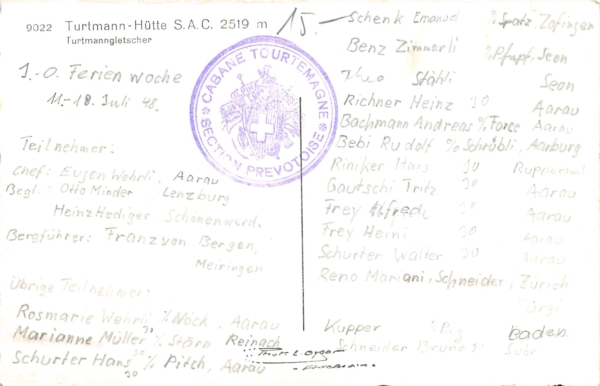 9022 Turtmann-Hütte S.A.C. 2519 m
Turtmanngletscher
J.-O. Ferien woche
11.-18. Juli 48.
Teilnehmer:
Chef: Eugen Wehrli, Aarau
Begl.: Otto Minder Lenzburg
Heinz Hediger Schönenwerd.
Bergführer: Franz von Bergen,
Meiringen
Übrige Teilnehmer:
Rosmarie Wehrli % Nöck, Aarau
Marianne Müller % Stärn Reinach
Schurter Hans % Pitch, Aarau
CABANE TOURTEMAGNE
SECTION PREVOTOISE
15.-
Schenk Emanuel % Spatz, Zofingen
Benz Zimmerli % Pfupf, Seon
Theo Stähli Seon
Richner Heinz JO Aarau
Bachmann Andreas % Force Aarau
Bebi Rudolf % Schrübli, Aarburg
Riniker Hans JO Rupperswil
Gautschi Fritz JO Aarau
Frey Alfred JO Aarau
Frey Heini JO Aarau
Schurter Walter JO Aarau
Reno Mariani, Schneider, Zürich
Turgi
Kupper Baden
Schneider Bruno Suhr